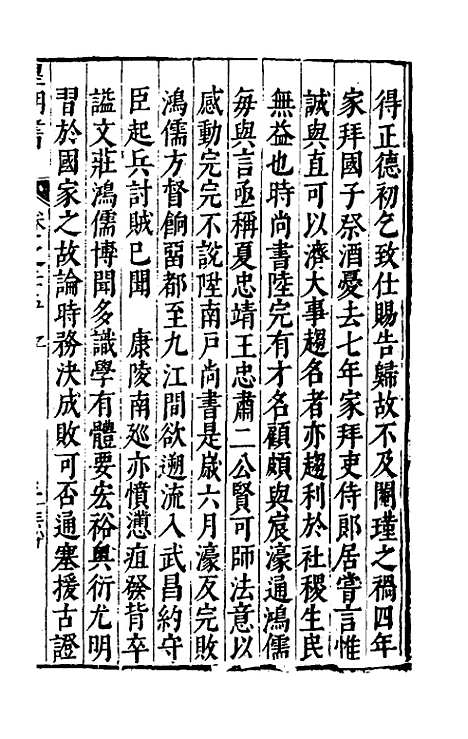 得正德初乞致仕賜告歸故不及閹瑾之禍四年
家拜國子祭酒憂去七年家拜吏侍郎居嘗言惟
誠與直可以濟大事趨名者亦趨利於社稷生民
無益也時尚書陸完有才名顧頗與宸濠通鴻儒
每與言亟稱夏忠靖王忠肅二公賢可師法意以
感動完完不說陞南戶尚書是歲六月濠反完敗
鴻儒方督餉畱都至九江間欲遡流入武昌約守
臣起兵討賊已聞　康陵南廵亦憤懣疽發背卒
諡文莊鴻儒博聞多識學有體要宏裕奥衍尤明
習於國家之故論時務決成敗可否通塞援古證
皇明書